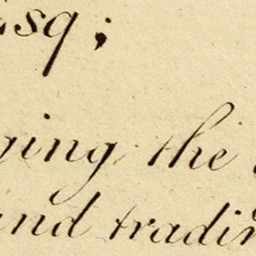 sq;
ging the
and tradin